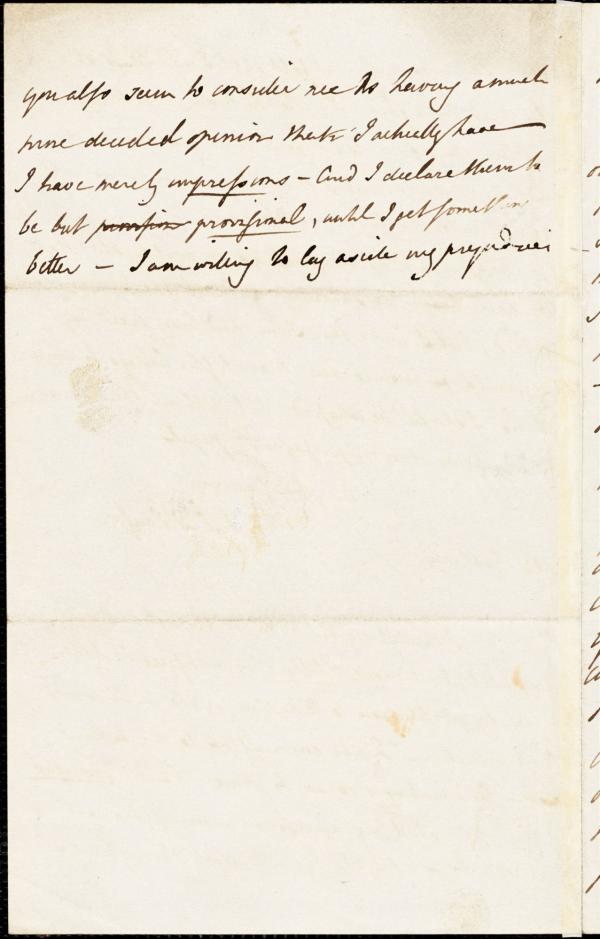 you also seem to consider me as having a much
more decided opinion than I actually have
I have merely impressions - And I declare them to
be but provisional, until I get something
better - I am willing to lay aside my prejudices